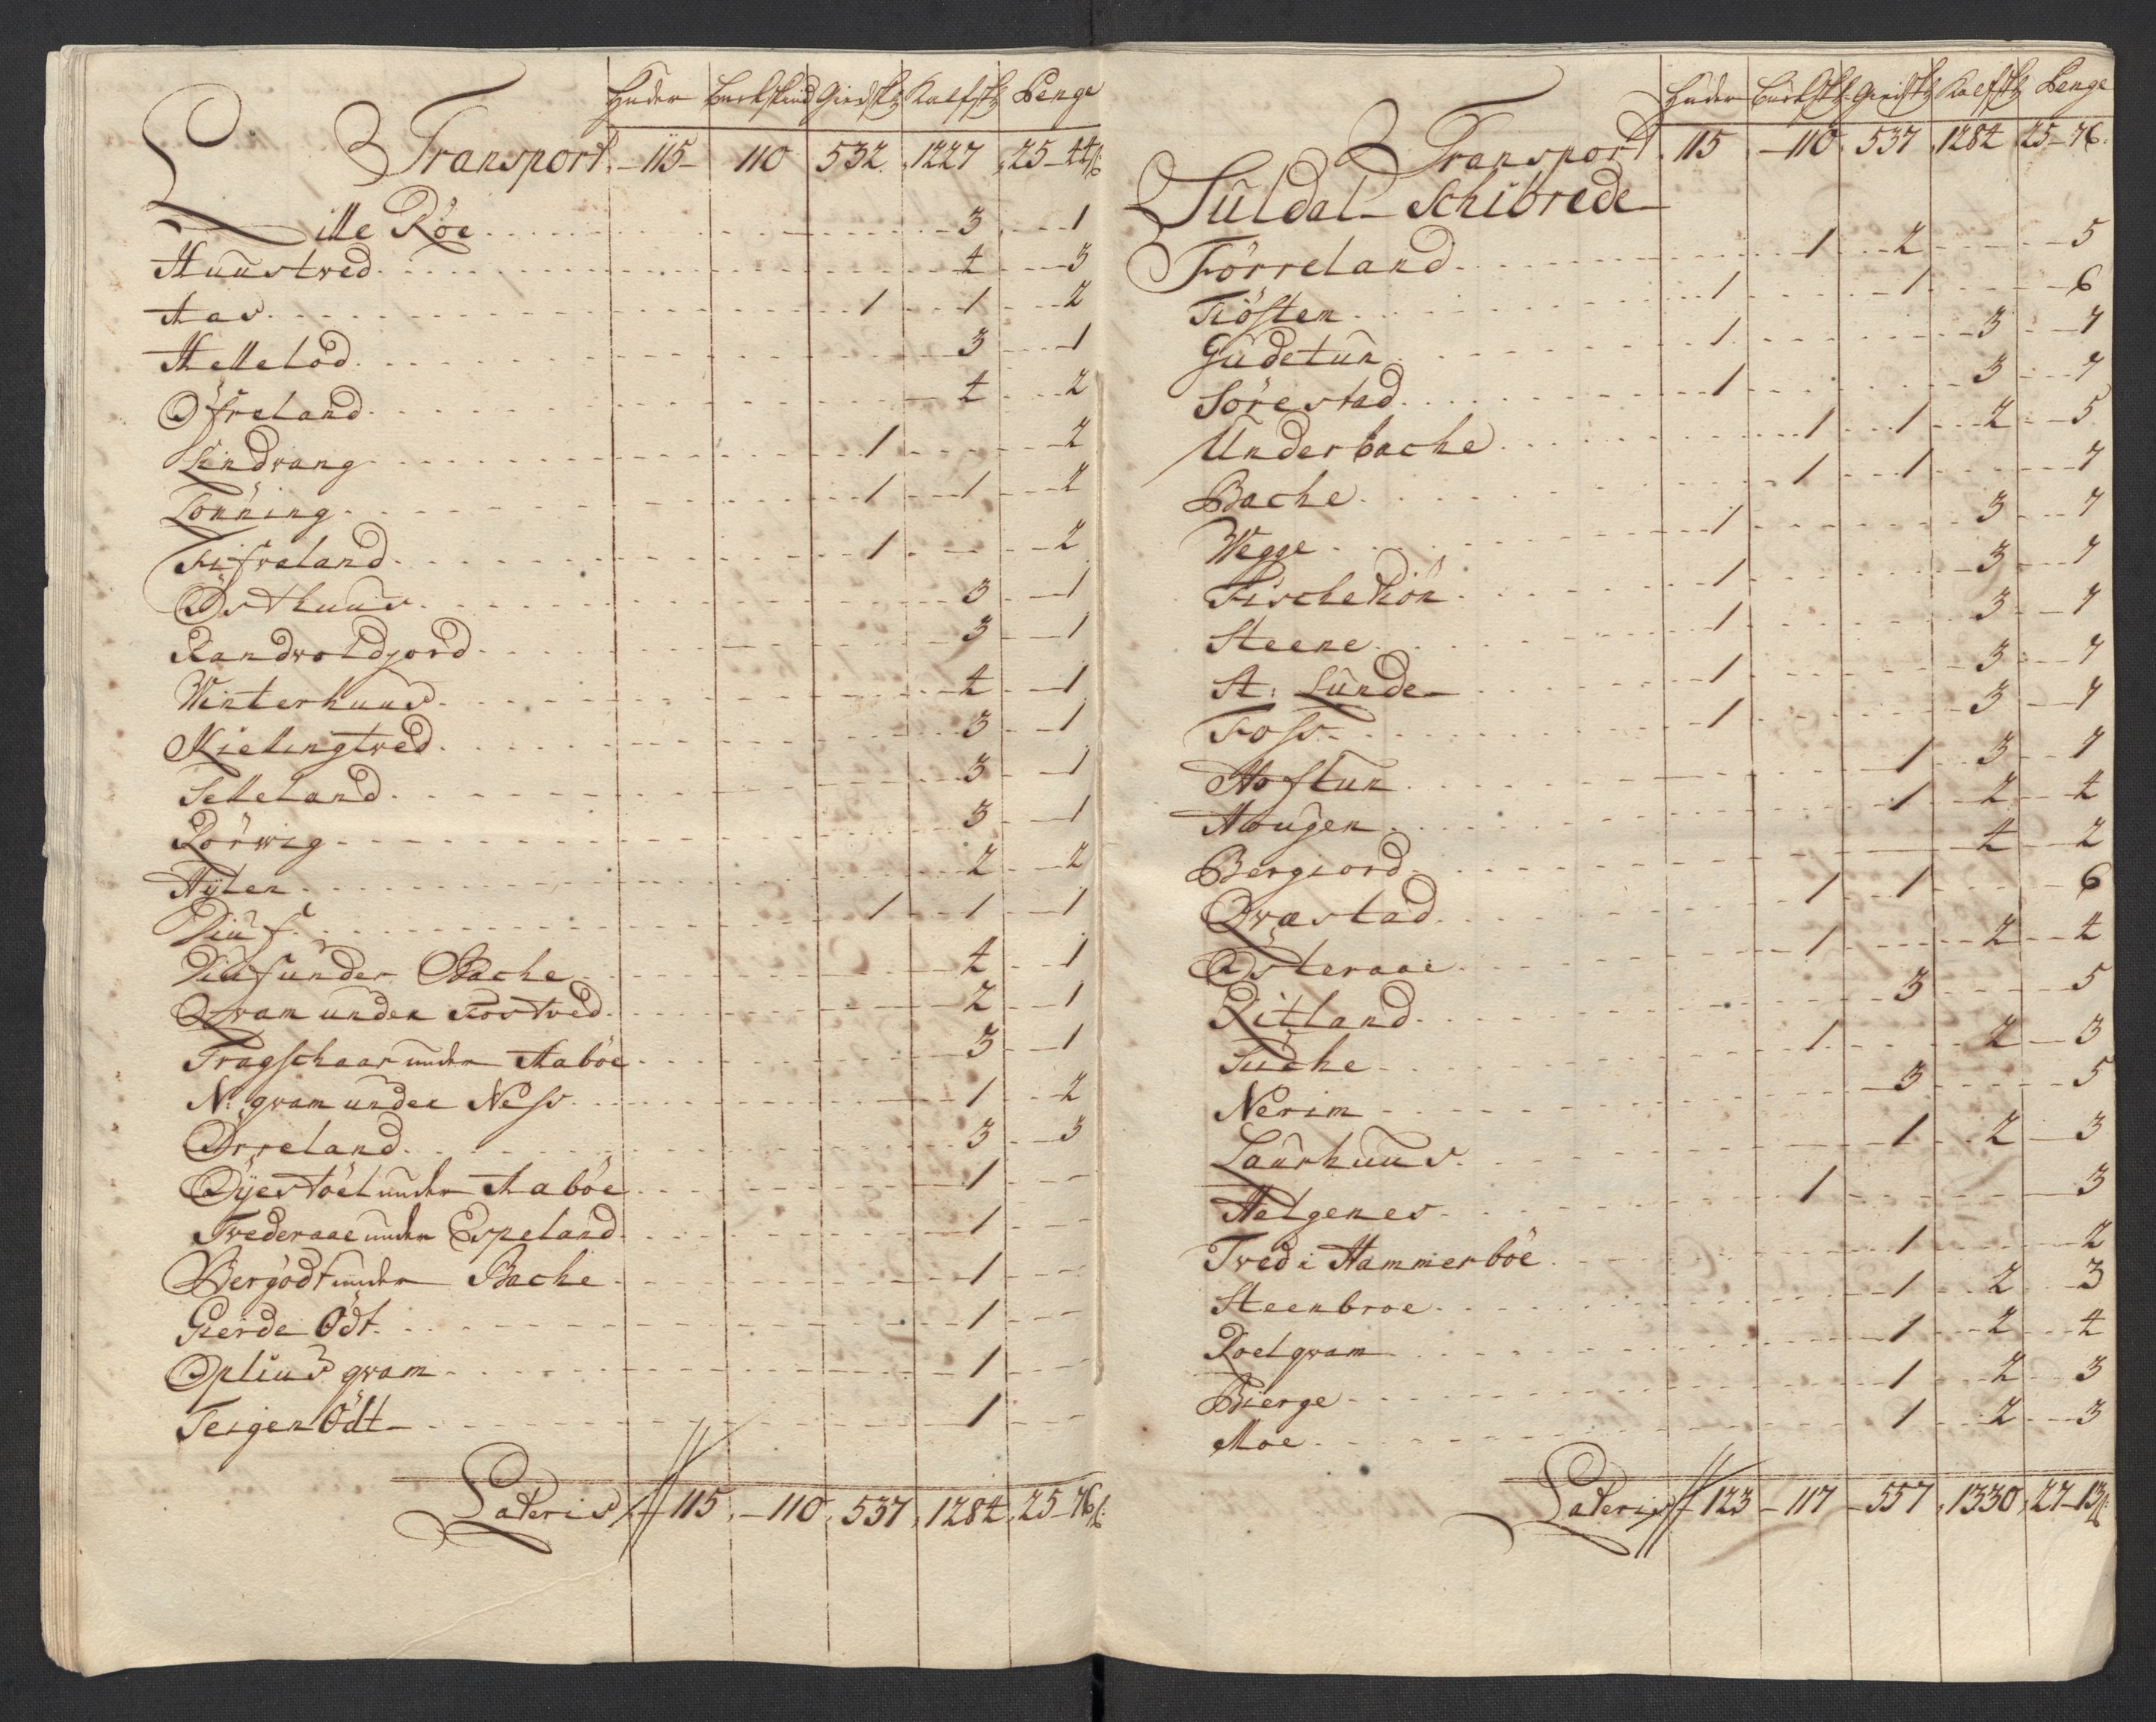 Huder Buckskind Giedsk Kalfsk Penge
Transport 115 110 532 1227 25 44
Lille Röe 3 1
Huustved 4 3
Aas 1 1 2
Hellelod 3 1
Öfreland 4 2
Lindvang 1 2
Lönning 1 1 2
Fifreland 1 2
Östhuus 3 1
Randvoldjord 3 1
Winterhuus 4 1
Kielingtved 3 1
Selleland 3 1
Rörwig 3 1
Hÿlen 2 2
Diuf 1 1 1
Diuf under Bache 4 1
Qvam under Rostved 2 1
Tragschaar under Aaböe 3 1
N: qvam under Ness 1 2
Örreland 3 3
Öÿestöel under Aaböe 1
Tvederaae under Espeland 1
Bergödt under Bache 1
Gierde Ödt 1
Opliusqvam 1
Teigen Ödt 1
Lateris 115 110 537 1284 25 76
Huder Bucksk Giedsk Kalfsk Penge
Transport 115 110 537 1284 25 76
Suldal Schibrede
Förreland 1 2 5
Fiösten 1 1 6
Gudetun 1 3 7
Sörestad 1 3 7
Underbache 1 1 2 5
Bache 1 1 7
Wegge 1 3 7
Fischekiön 1 3 7
Steene 1 3 7
St: Lunde 1 3 7
Foss 1 3 7
Hoftun 1 3 7
Haugen 1 2 4
Bergiord 4 2
Qvæstad 1 1 6
Österaae 1 2 4
Ritland 3 5
Suche 1 2 3
Nerim 3 5
Laurhuus 1 2 3
Helgenes 1 3
Tved i Hammerböe 1 2
Steenbroe 1 2 3
Roelqvam 1 2 4
Bierge 1 2 3
Moe 1 2 3
Lateris 123 117 557 1330 27 13